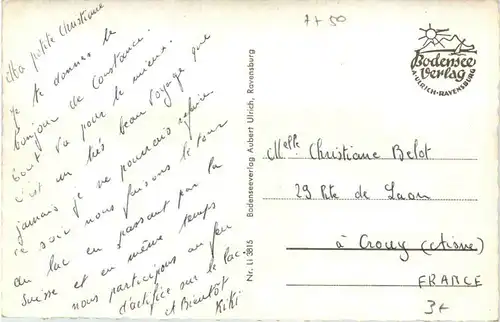 Ma petite Christiane
je te donnes le
bonjour de Constance.
Tout va pour le mieux.
C'est un très beau voyage que
jamais je ne pourrais refaire.
Ce soir nous faisons le tour
du lac en passant par la
Suisse et en même temps
nous participons au feu
d'artifice sur le lac.
et Bientôt
Kiki
Nr. Li 3815 Bodenseeverlag Aubert Ulrich, Ravensburg
7+50
Bodensee
Verlag
A·ULRICH·RAVENSBURG
Melle Christiane Belot
29 Rte de Laon
à Crouy (Aisne)
FRANCE
3+